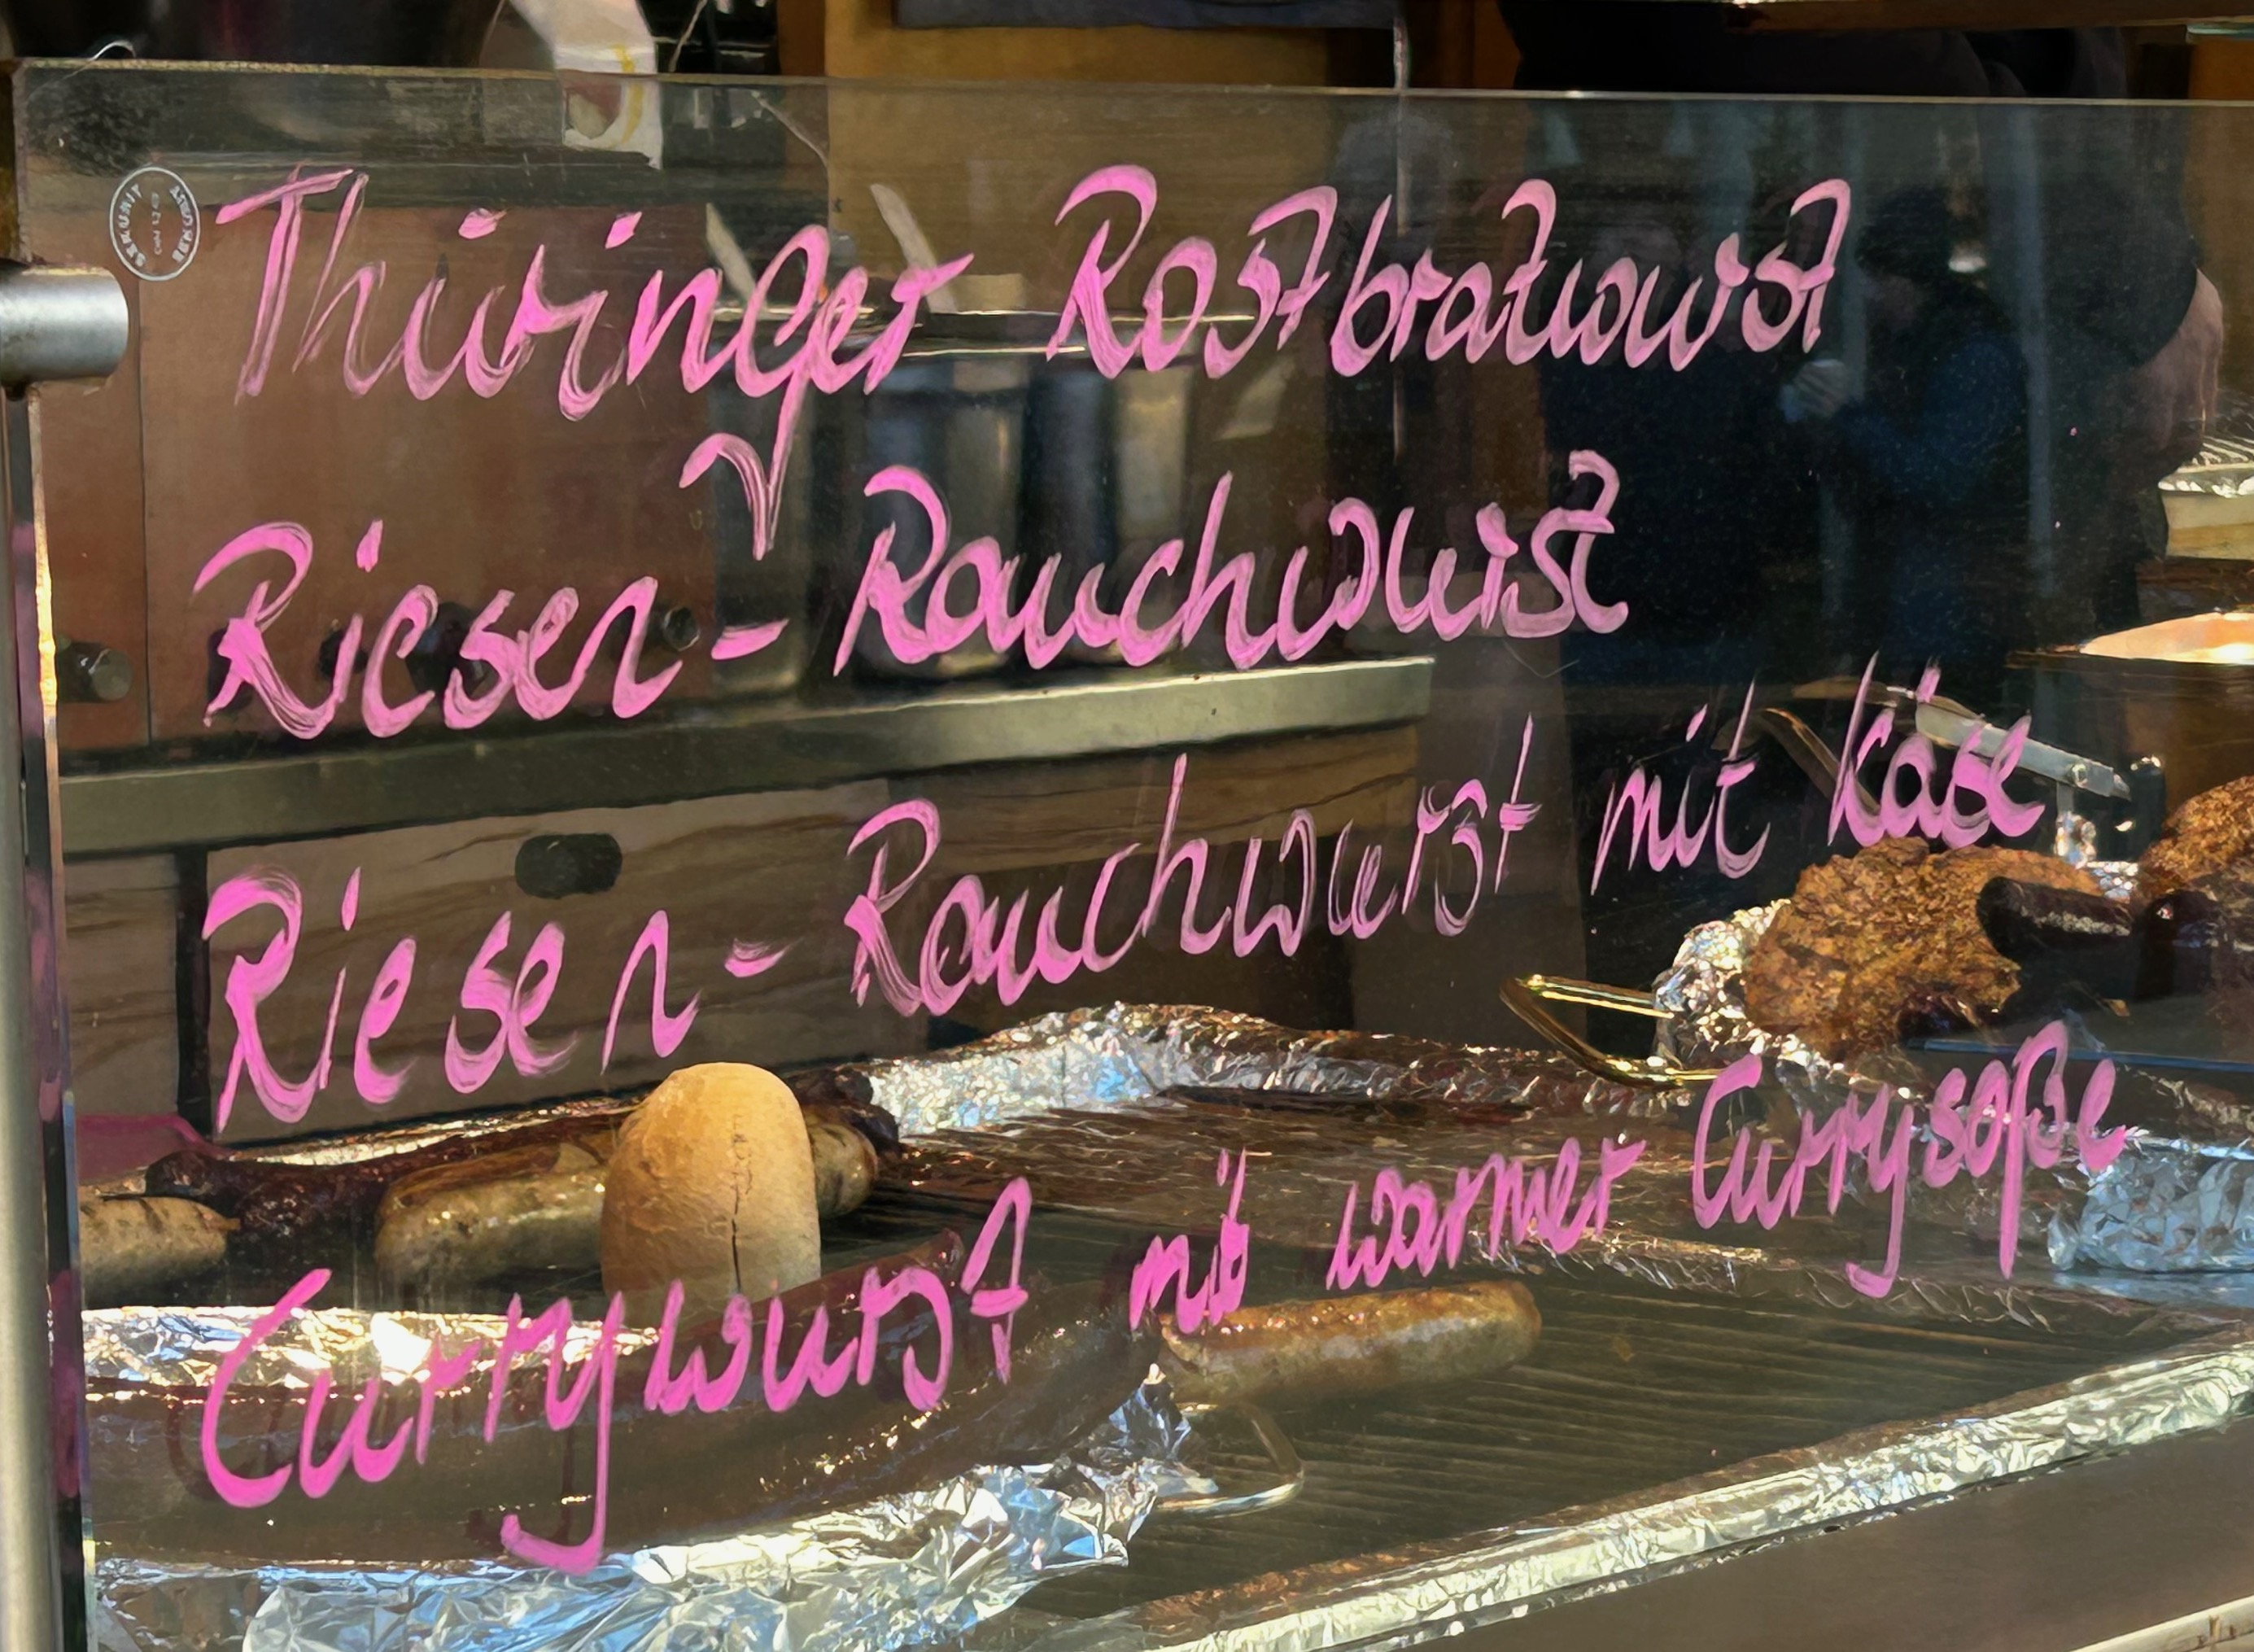 Thüringer Rostbratwurst
Riesen-Rauchwurst
Riesen-Rauchwurst mit Käse
Currywurst mit warmer Currysoße